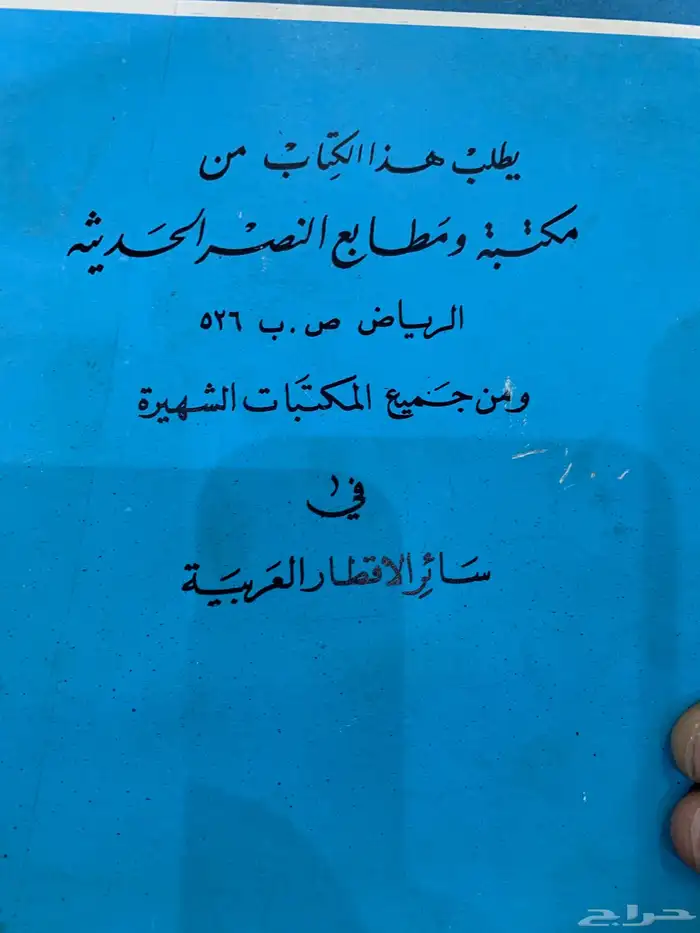 يطلب هذا الكتاب من
مكتبة ومطابع النصر الحديثه
الرياض ص.ب ٥٢٦
ومن جميع المكتبات الشهيرة
في
سائر الاقطار العربية
حراج